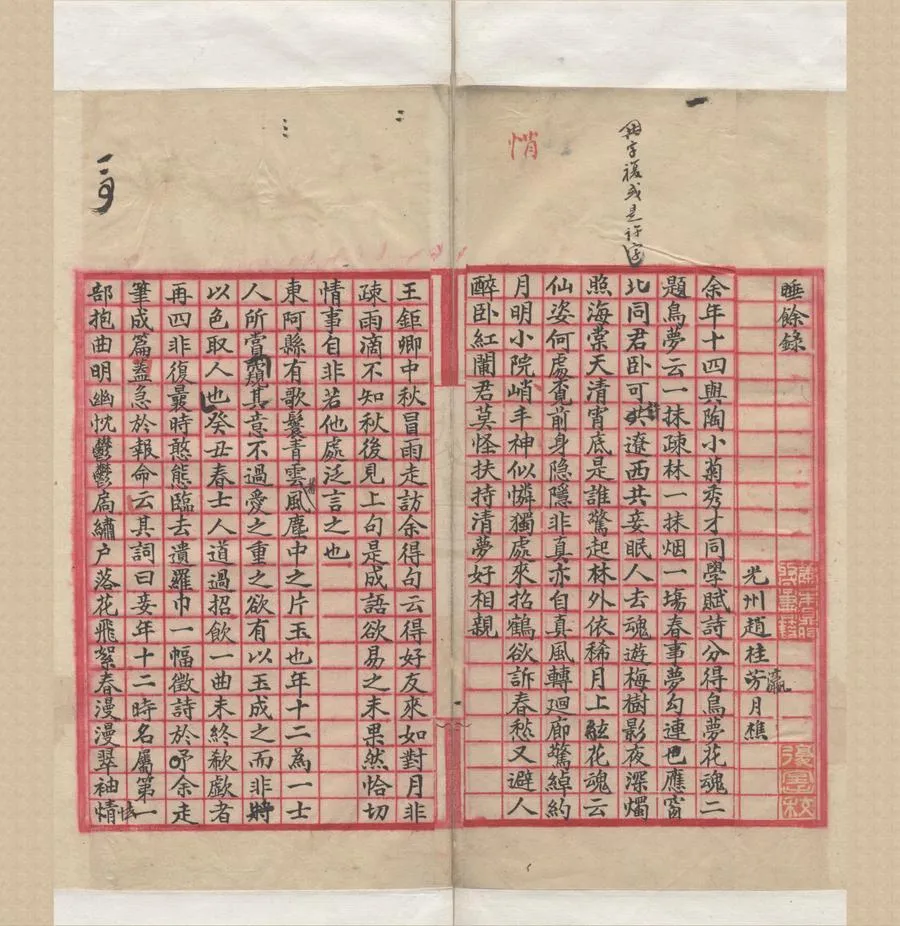 睡餘錄
光州趙桂芳月樵
瀛
余年十四與陶小菊秀才同學賦詩分得鳥夢花魂二
題鳥夢云一抹疎林一抹烟一塲春事夢勾連也應窗
北同君卧可共遼西共妾眠人去魂遊梅樹影夜深燭
照海棠天清宵底是誰驚起林外依稀月上絃花魂云
仙姿何處覔前身隐隱非真亦自真風轉廻廊驚綽約
月明小院峭丰神似憐獨處來招鶴欲訴春愁又避人
醉卧紅闌君莫怪扶持清夢好相親
字復或是許字
悄
王鉅卿中秋冒雨走訪余得句云得好友來如對月非
疎雨滴不知秋後見上句是成語欲易之未果然恰切
情事自非若他處泛言之也
東阿縣有歌鬟青雲風塵中之片玉也年十二為一士
人所賞窺其意不過愛之重之欲有以玉成之而非將
以色取人也癸丑春士人道過招飲一曲未終欷歔者
再四非復曩時憨態臨去遺羅巾一幅徵詩於予余走
筆成篇蓋急於報命云其詞曰妾年十二時名屬第一
部抱曲明幽忱鬱鬱扃繡户落花飛絮春漫漫翠袖情